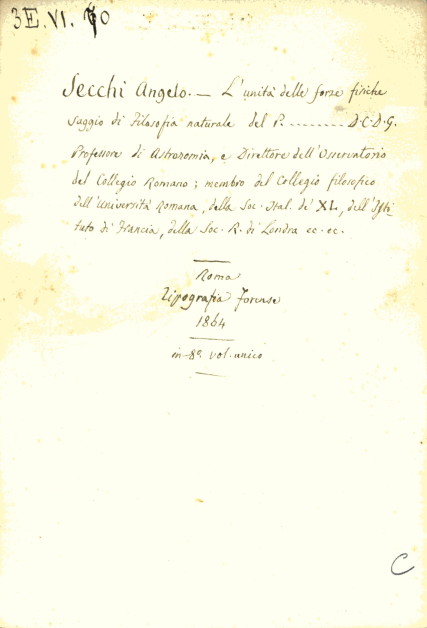 3E.VI. 70
Secchi Angelo. — L'unità delle forze fisiche
saggio di Filosofia naturale del P. ......... D.C.D.G.
Professore di Astronomia, e Direttore dell'Osservatorio
del Collegio Romano; membro del Collegio filosofico
dell'Università Romana, della Soc. Ital. de' XL., dell'Isti
tuto di Francia, della Soc. R. di Londra ec. ec.
Roma
Tipografia Forense
1864
in-8º vol. unico
C